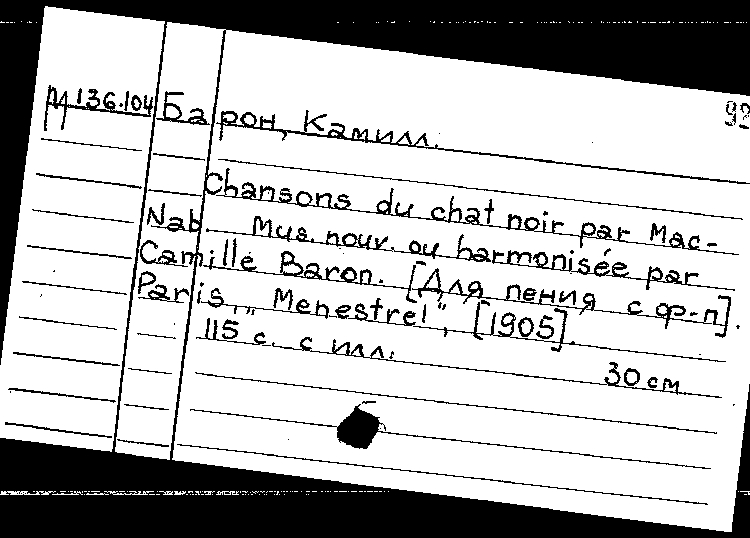 М 136.104 Барон, Камилл. 92
Chansons du chat noir par Mac-
Nab. Mus. nouv. ou harmonisée par
Camille Baron. [Для пения с ф-п].
Paris, „Menestrel", [1905].
115 с. с илл.
30 см